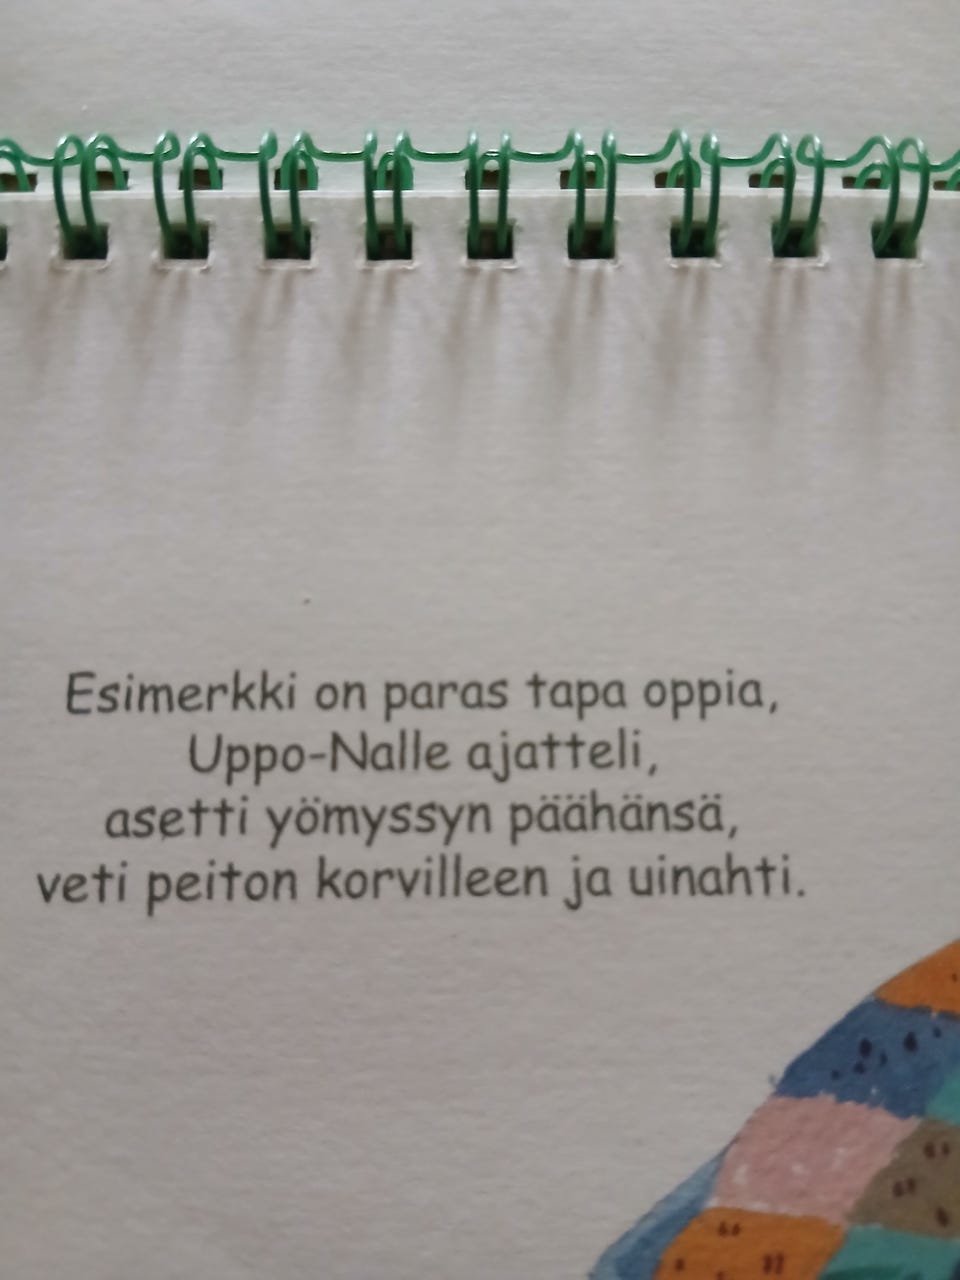 Esimerkki on paras tapa oppia,
Uppo-Nalle ajatteli,
asetti yömyssyn päähänsä,
veti peiton korvilleen ja uinahti.